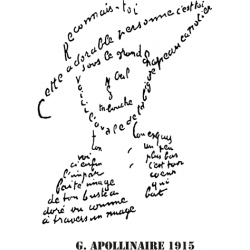 Reconnais-toi
Cette adorable personne c'est toi
sous le grand chapeau canotier
œil
nez
la bouche
Voici l'ovale de ta figure
ton cou exquis
voi
ci enfin
l'impar
faite image
de ton buste a
doré vu comme
à travers un nuage
un peu
plus bas
c'est ton
coeur
qui
bat
G. APOLLINAIRE 1915